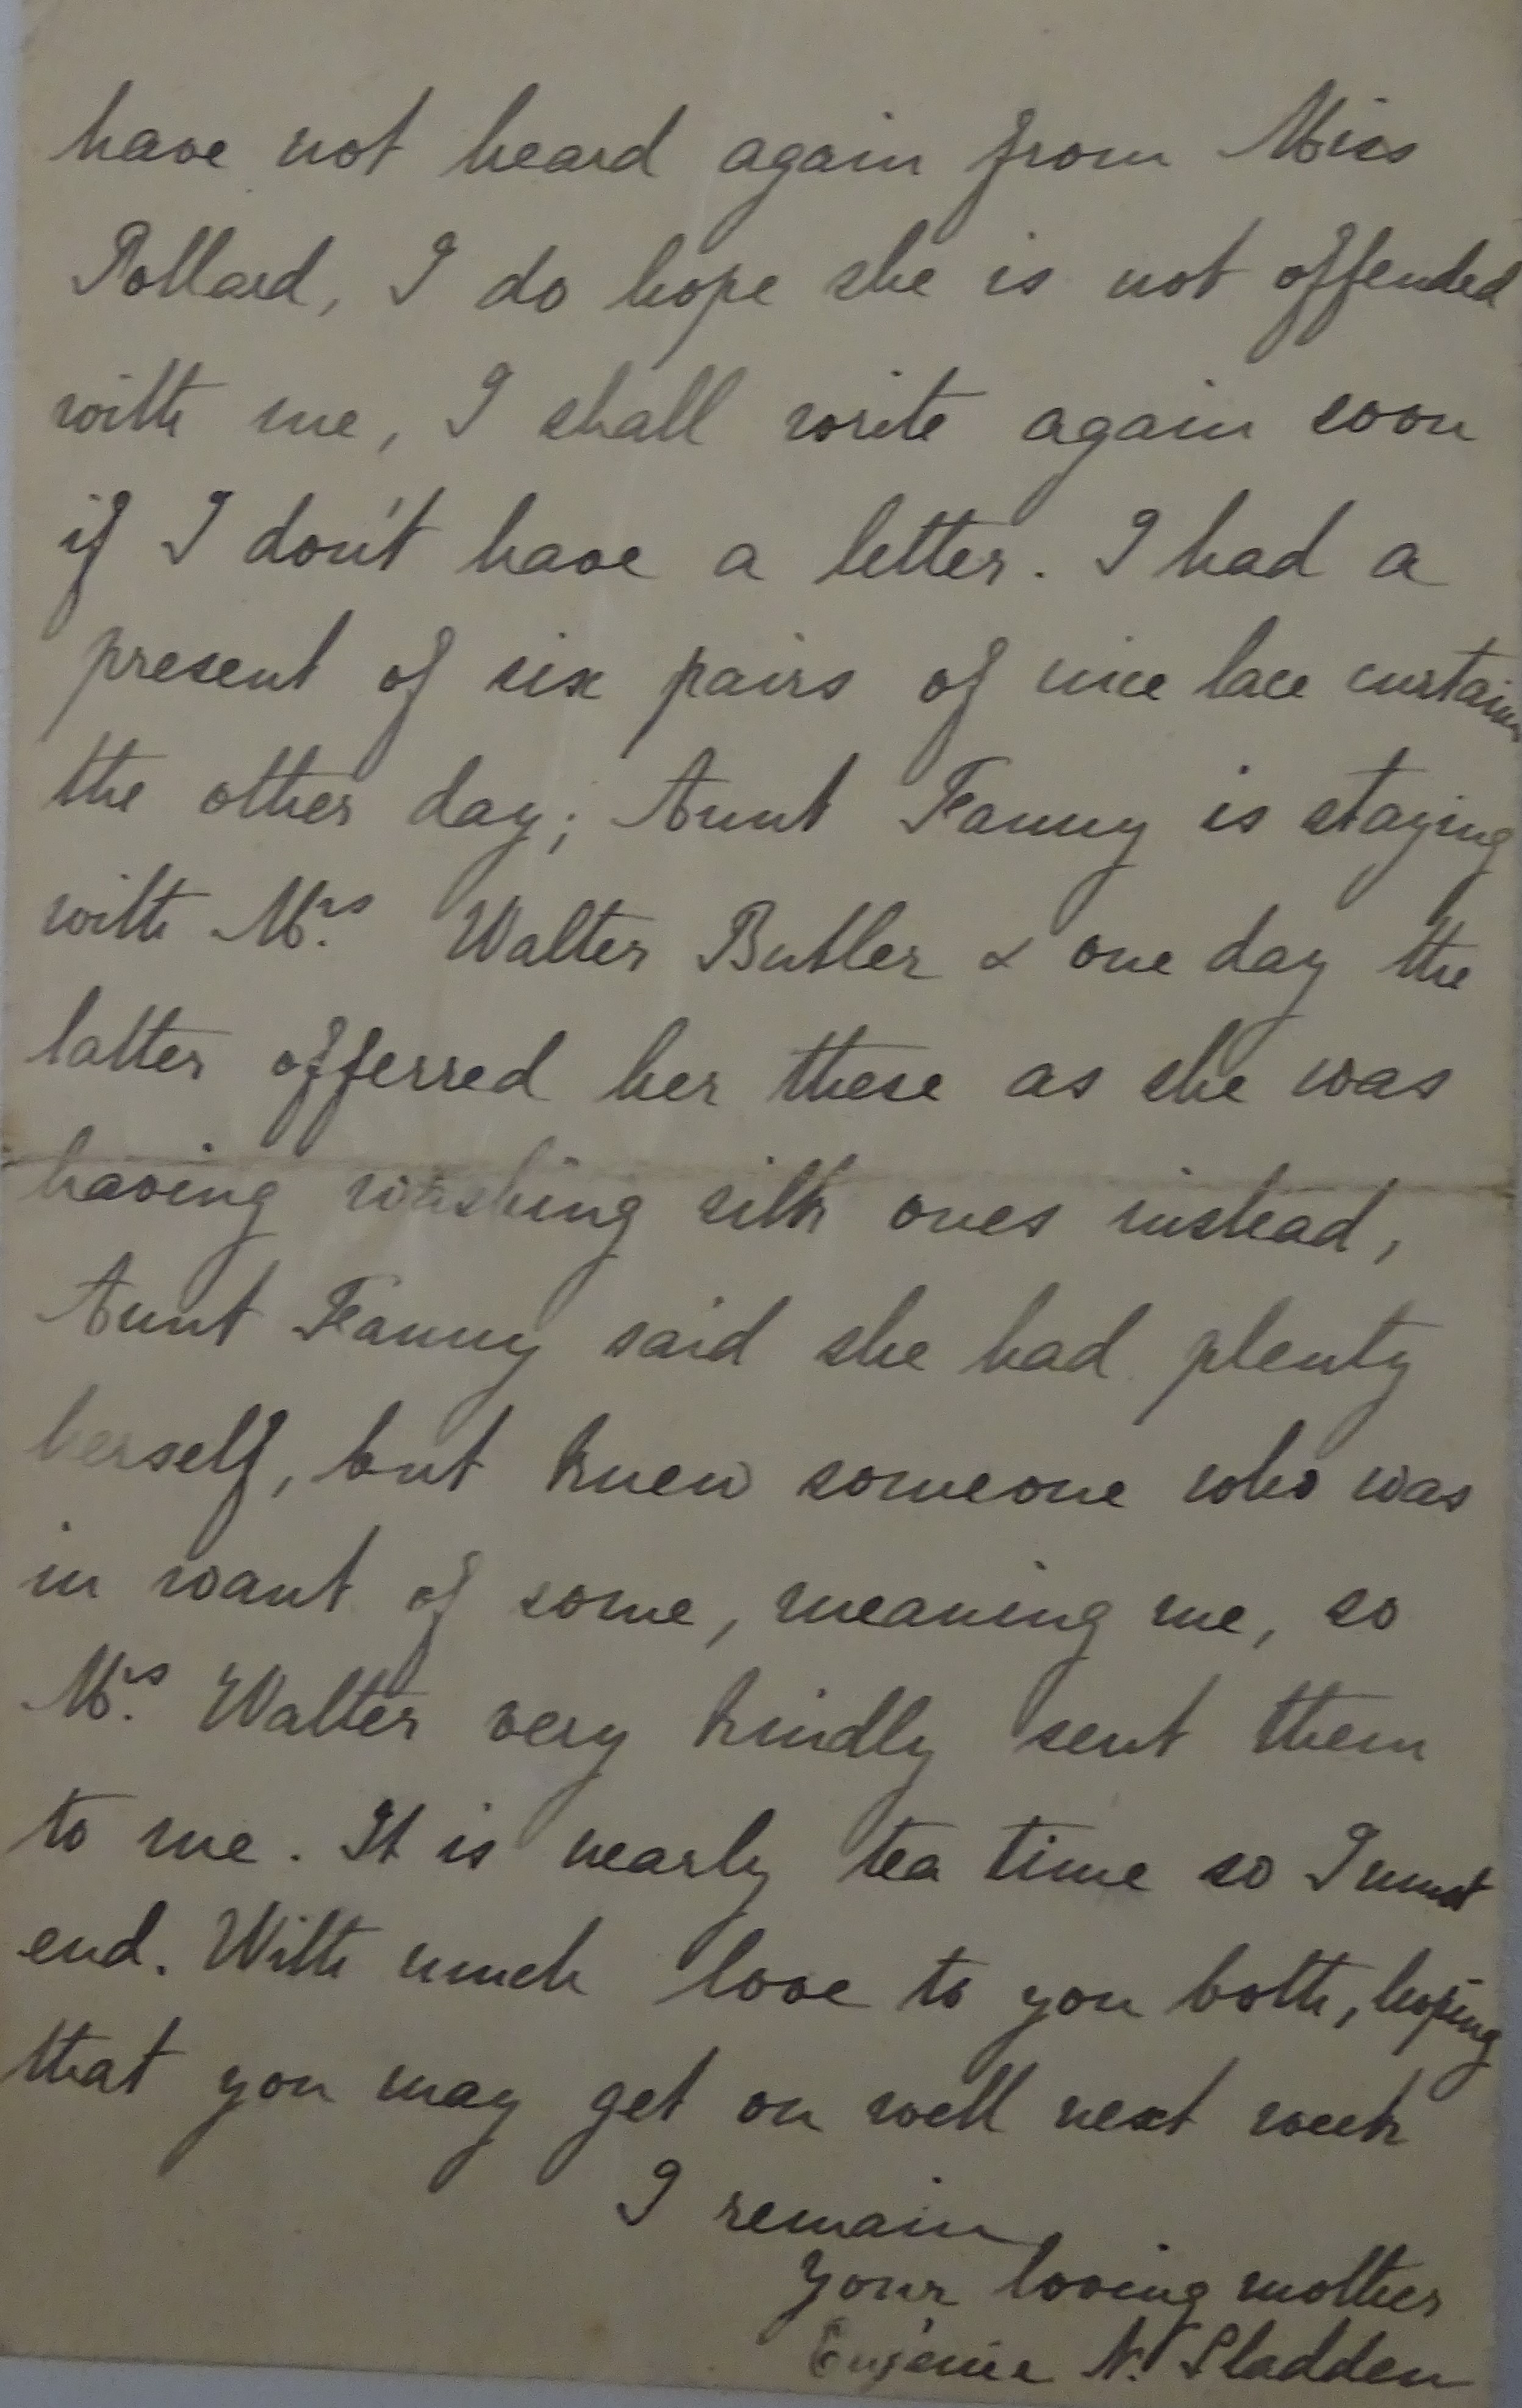 have not heard again from Miss
Pollard, I do hope she is not offended
with me, I shall write again soon
if I don't have a letter. I had a
present of six pairs of nice lace curtains
the other day; Aunt Fanny is staying
with Mrs. Walter Butler & one day the
latter offerred her these as she was
having washing silk ones instead,
Aunt Fanny said she had plenty
herself, but knew someone who was
in want of some, meaning me, so
Mrs. Walter very kindly sent them
to me. It is nearly tea time so I must
end. With much love to you both, hoping
that you may get on well next week
I remain
Your loving mother
Eugénie N. Sladden